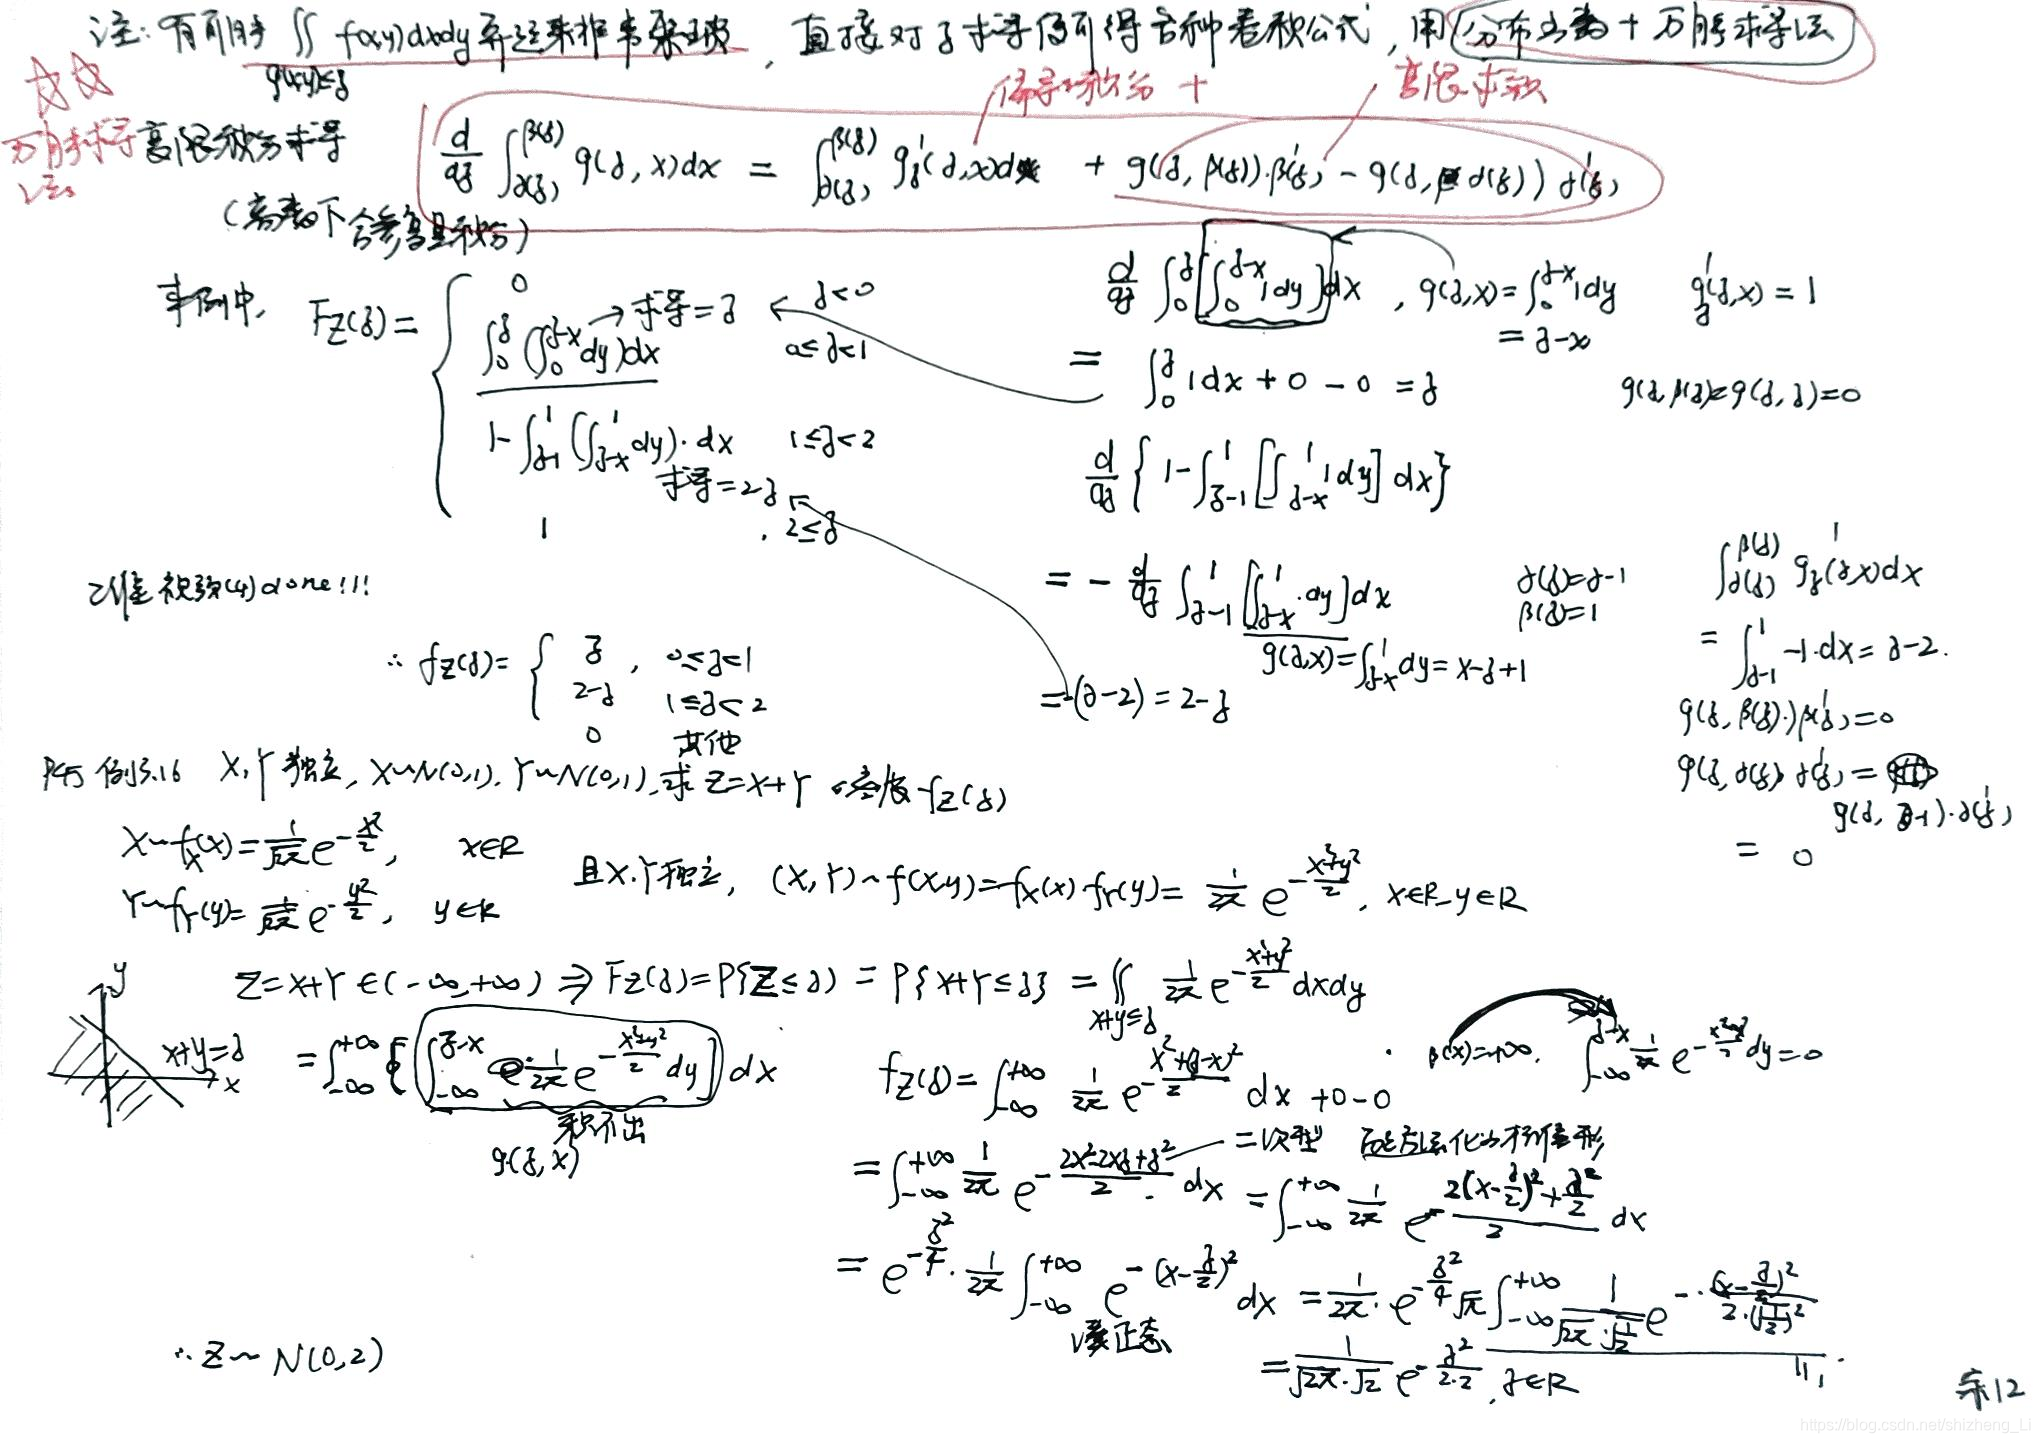 注:有可能 ∬ f(x,y)dxdy 算起来非常麻烦, 直接对z求导便可得各种卷积公式, 用(分布函数+万能求导法)
g(x,y)≤z
☆☆ 偏导积分 + 变限求积
万能求导法 变限积分求导 d/dz ∫_{α(z)}^{β(z)} g(z,x)dx = ∫_{α(z)}^{β(z)} g'_z(z,x)dx + g(z,β(z))·β'(z) - g(z,α(z))α'(z)
(高数下含参变量积分)
本例中, F_Z(z)= { 0 z<0
∫_0^z(∫_0^{z-x}dy)dx →求导=z 0≤z<1
1-∫_{z-1}^1(∫_{z-x}^1dy)·dx 1≤z<2
求导=2-z
1 , 2≤z
d/dz ∫_0^z[∫_0^{z-x}1dy]dx , g(z,x)=∫_0^{z-x}1dy g'_z(z,x)=1
=z-x
= ∫_0^z 1dx+0-0=z g(z,β(z))=g(z,z)=0
d/dz{1-∫_{z-1}^1[∫_{z-x}^1 1dy]dx}
= - d/dz ∫_{z-1}^1[∫_{z-x}^1·dy]dx α(z)=z-1 ∫_{α(z)}^{β(z)} g'_z(z,x)dx
β(z)=1
g(z,x)=∫_{z-x}^1dy=x-z+1 = ∫_{z-1}^1 -1·dx=z-2.
=-(z-2)=2-z
g(z,β(z))·β'(z)=0
g(z,α(z))α'(z)=
g(z,z-1)·α'(z)
= 0
二维 视频(4)done!!!
∴ f_Z(z)= { z , 0≤z<1
2-z 1≤z<2
0 其他
例3.16 X,Y独立, X~N(0,1), Y~N(0,1),求Z=X+Y 密度f_Z(z)
X~f_X(x)=1/√2π e^{-x²/2}, x∈R
Y~f_Y(y)=1/√2π e^{-y²/2}, y∈R
且X,Y独立, (X,Y)~f(x,y)=f_X(x)·f_Y(y)= 1/2π e^{-(x²+y²)/2}, x∈R,y∈R
Z=X+Y∈(-∞,+∞) ⇒ F_Z(z)=P{Z≤z} = P{X+Y≤z} = ∬_{x+y≤z} 1/2π e^{-(x²+y²)/2}dxdy
y
x+y=z
x
=∫_{-∞}^{+∞}{[∫_{-∞}^{z-x} 1/2π e^{-(x²+y²)/2}dy]dx
积不出
g(z,x)
f_Z(z)=∫_{-∞}^{+∞} 1/2π e^{-(x²+(z-x)²)/2} dx +0-0
β(x)=+∞. ∫_{-∞}^{z-x} 1/2π e^{-(x²+y²)/2}dy=0
=∫_{-∞}^{+∞} 1/2π e^{-(2x²-2xz+z²)/2} dx 二次型 配方法化为标准形
=∫_{-∞}^{+∞} 1/2π e^{-(2(x-z/2)²+z²/2)/2} dx
= e^{-z²/4}·1/2π ∫_{-∞}^{+∞} e^{-(x-z/2)²}dx = 1/2π·e^{-z²/4}√π∫_{-∞}^{+∞} 1/(√2π·√(1/2)) e^{-(x-z/2)²/(2·(√(1/2))²)}
凑正态
= 1/(√2π·√2) e^{-z²/(2·2)}, z∈R
∴ Z~N(0,2)
12
https://blog.csdn.net/shizheng_Li